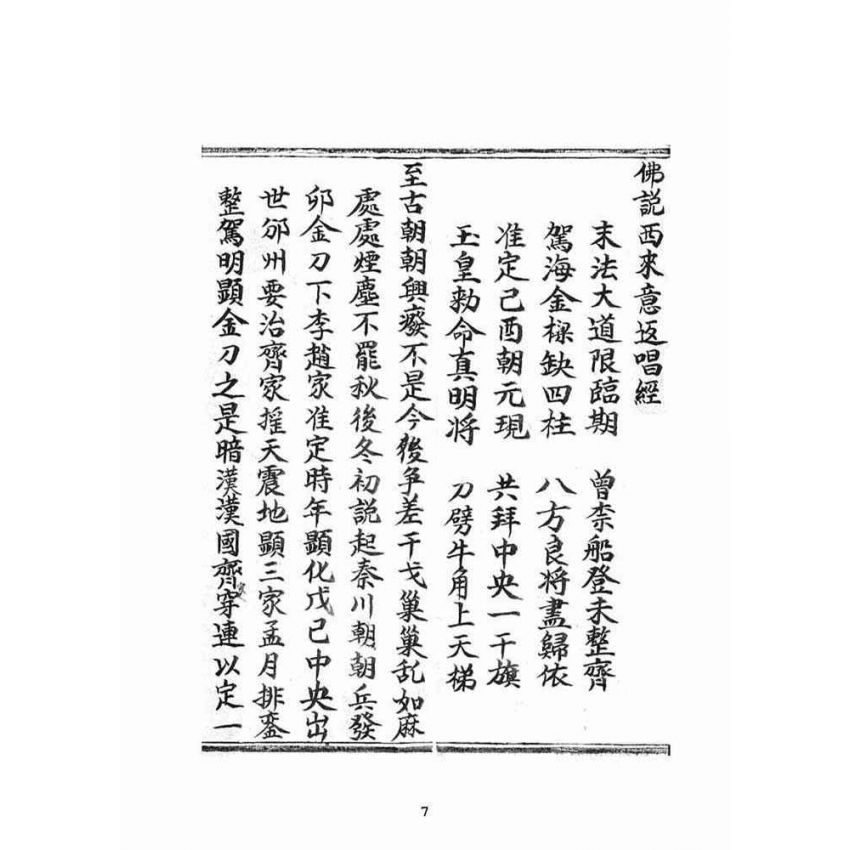 佛説西來意返唱經
末法大道限臨期　曾柰船登未整齊
駕海金樑缺四柱　八方良將盡歸依
准定己酉朝元現　共拜中央一干旗
玉皇勅命真明将　刀劈牛角上天梯
至古朝朝興癈不是今後争差干戈巢巢乱如麻
處處煙塵不罷秋後冬初説起秦川朝朝兵發
卯金刀下李趙家准定時年顯化戊己中央出
世邠州要治齊家摇天震地顯三家孟月排鑾
整駕明顯金刀之是暗漢漢國齊穿連以定一
7